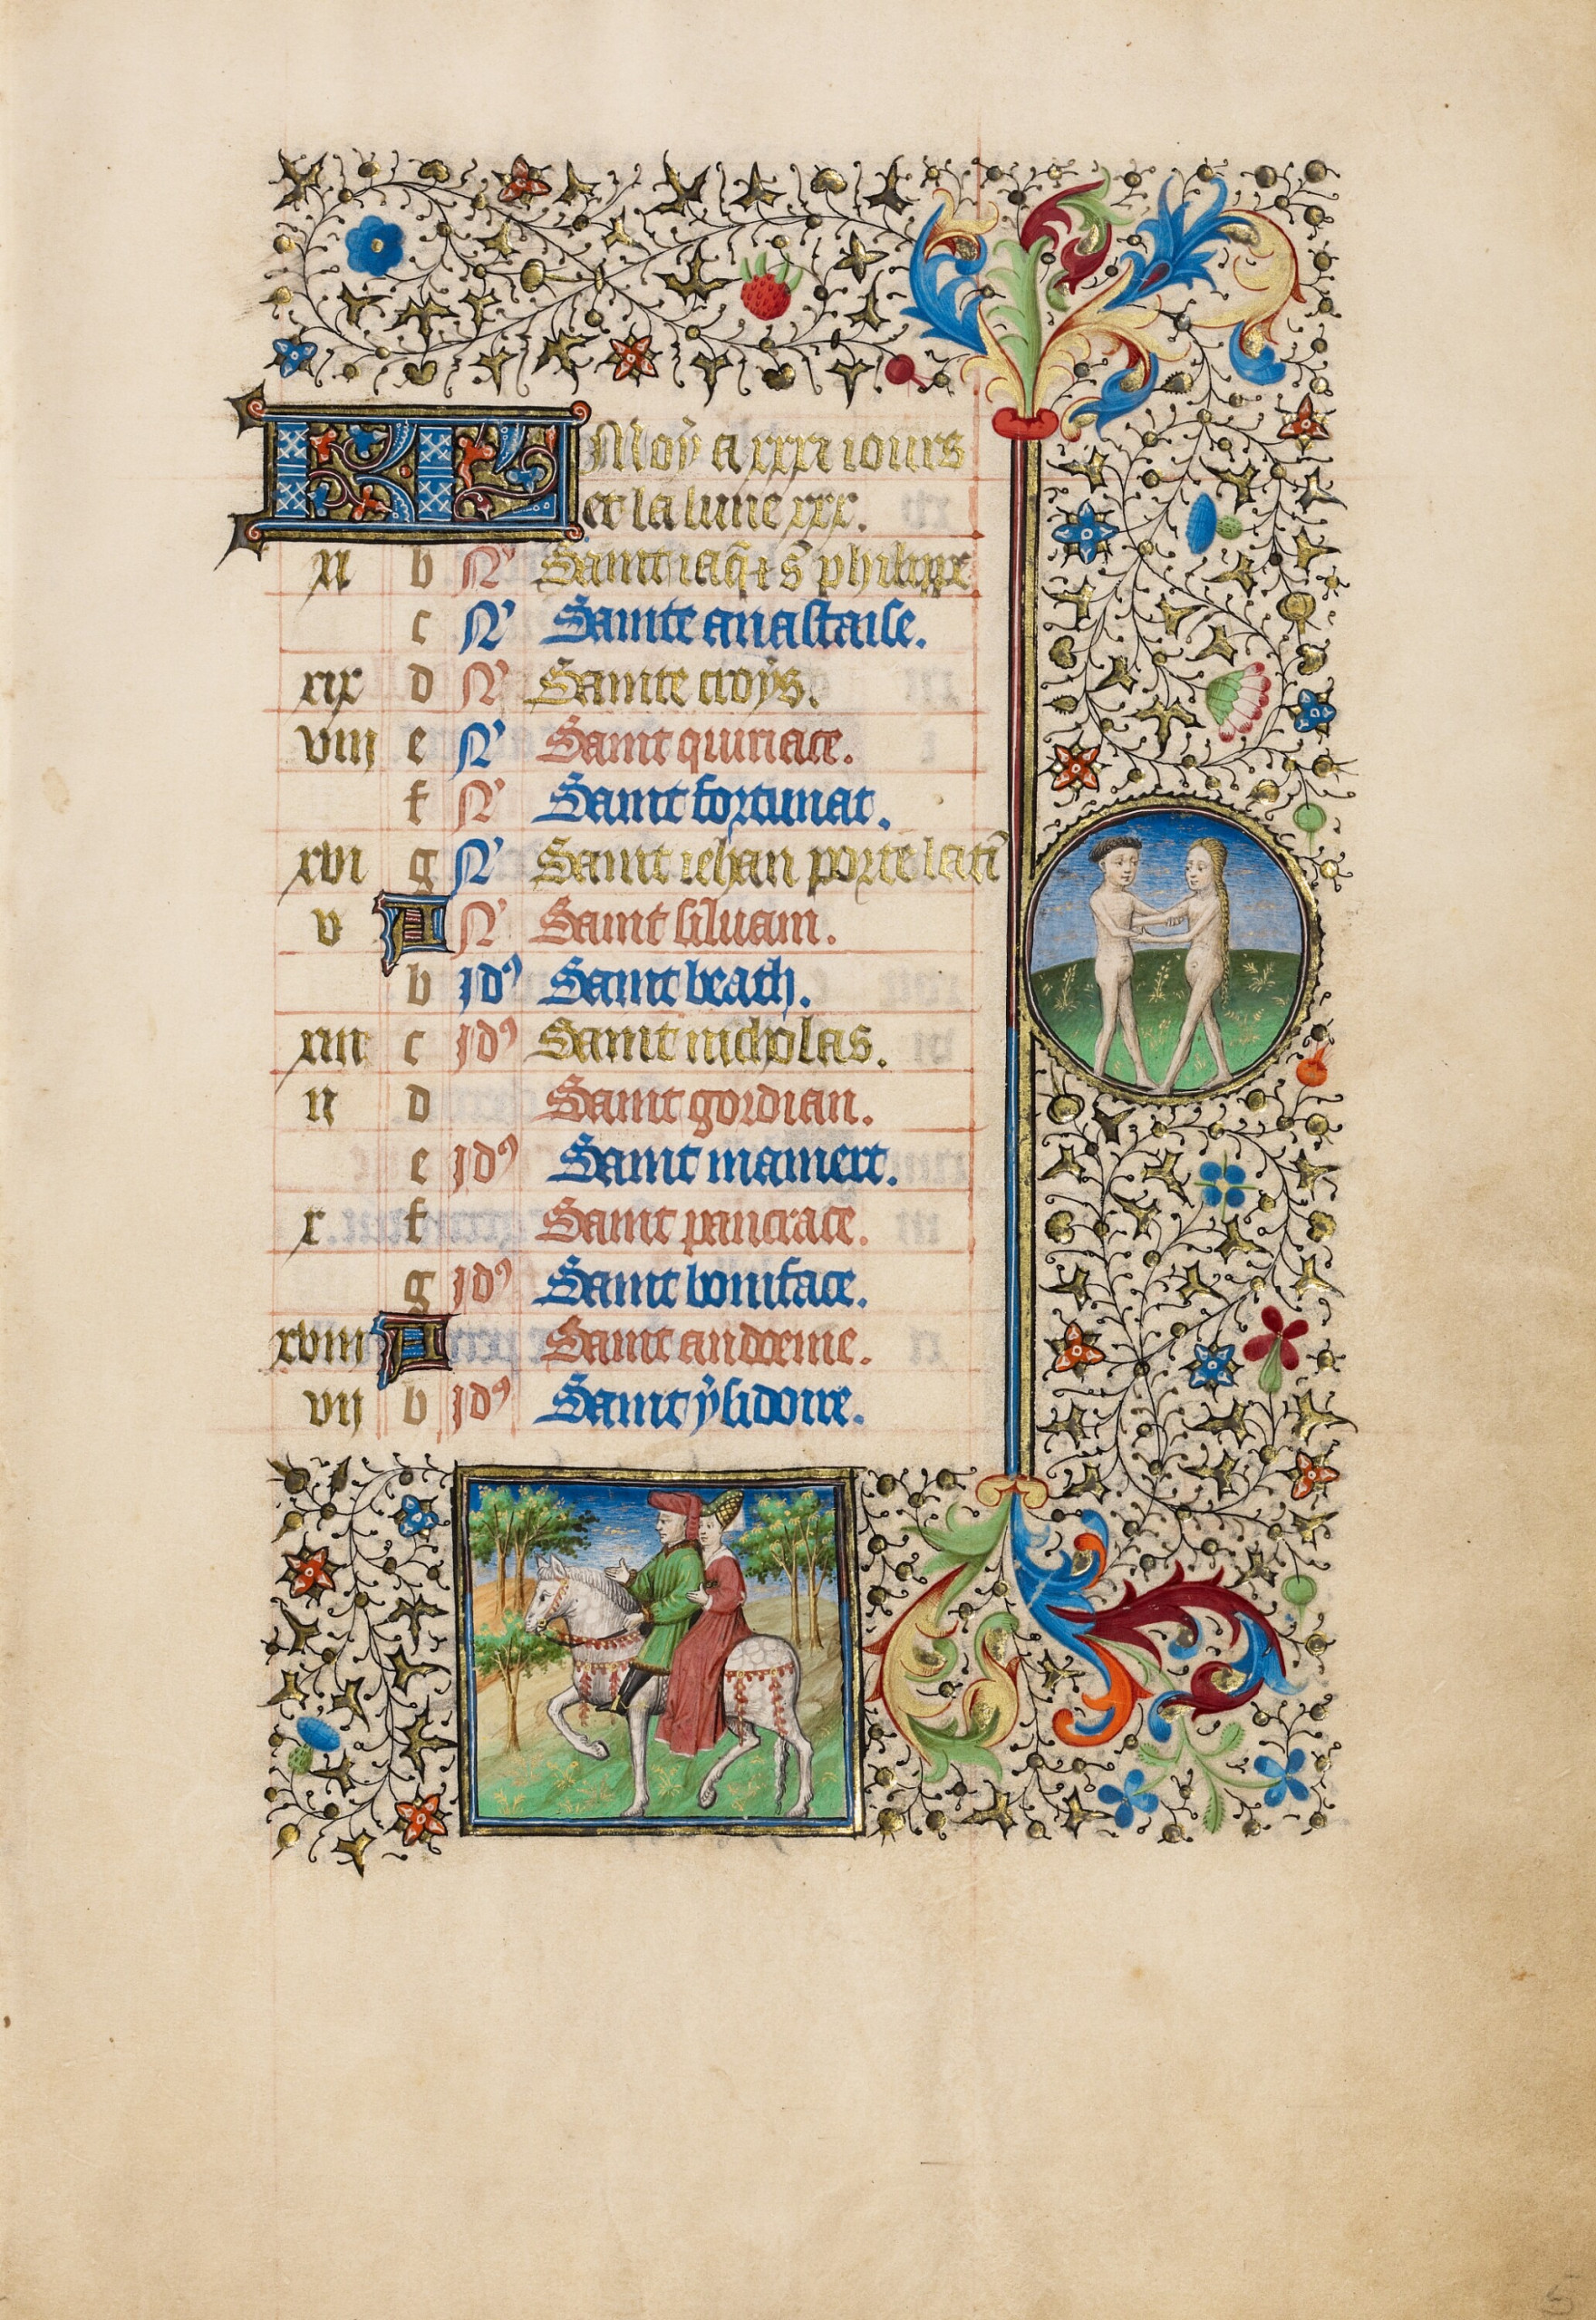 KL Moy a xxxi iours
et la lune xxx.
xi b N' Saint iaq̃s ⁊ s̃ philippe
c N' Sainte anastaise.
xix d N' Sainte croys.
viii e N' Saint quiriace.
f N' Saint fortunat.
xvi g N' Saint iehan porte latĩ
v A N' Saint siluain.
b Id9 Saint beath.
xiii c Id9 Saint nicholas.
ii d Saint gordian.
e Id9 Saint mamert.
x f Saint pancrace.
g Id9 Saint boniface.
xviii A Saint
vii b Id9 Saint ysidoire.